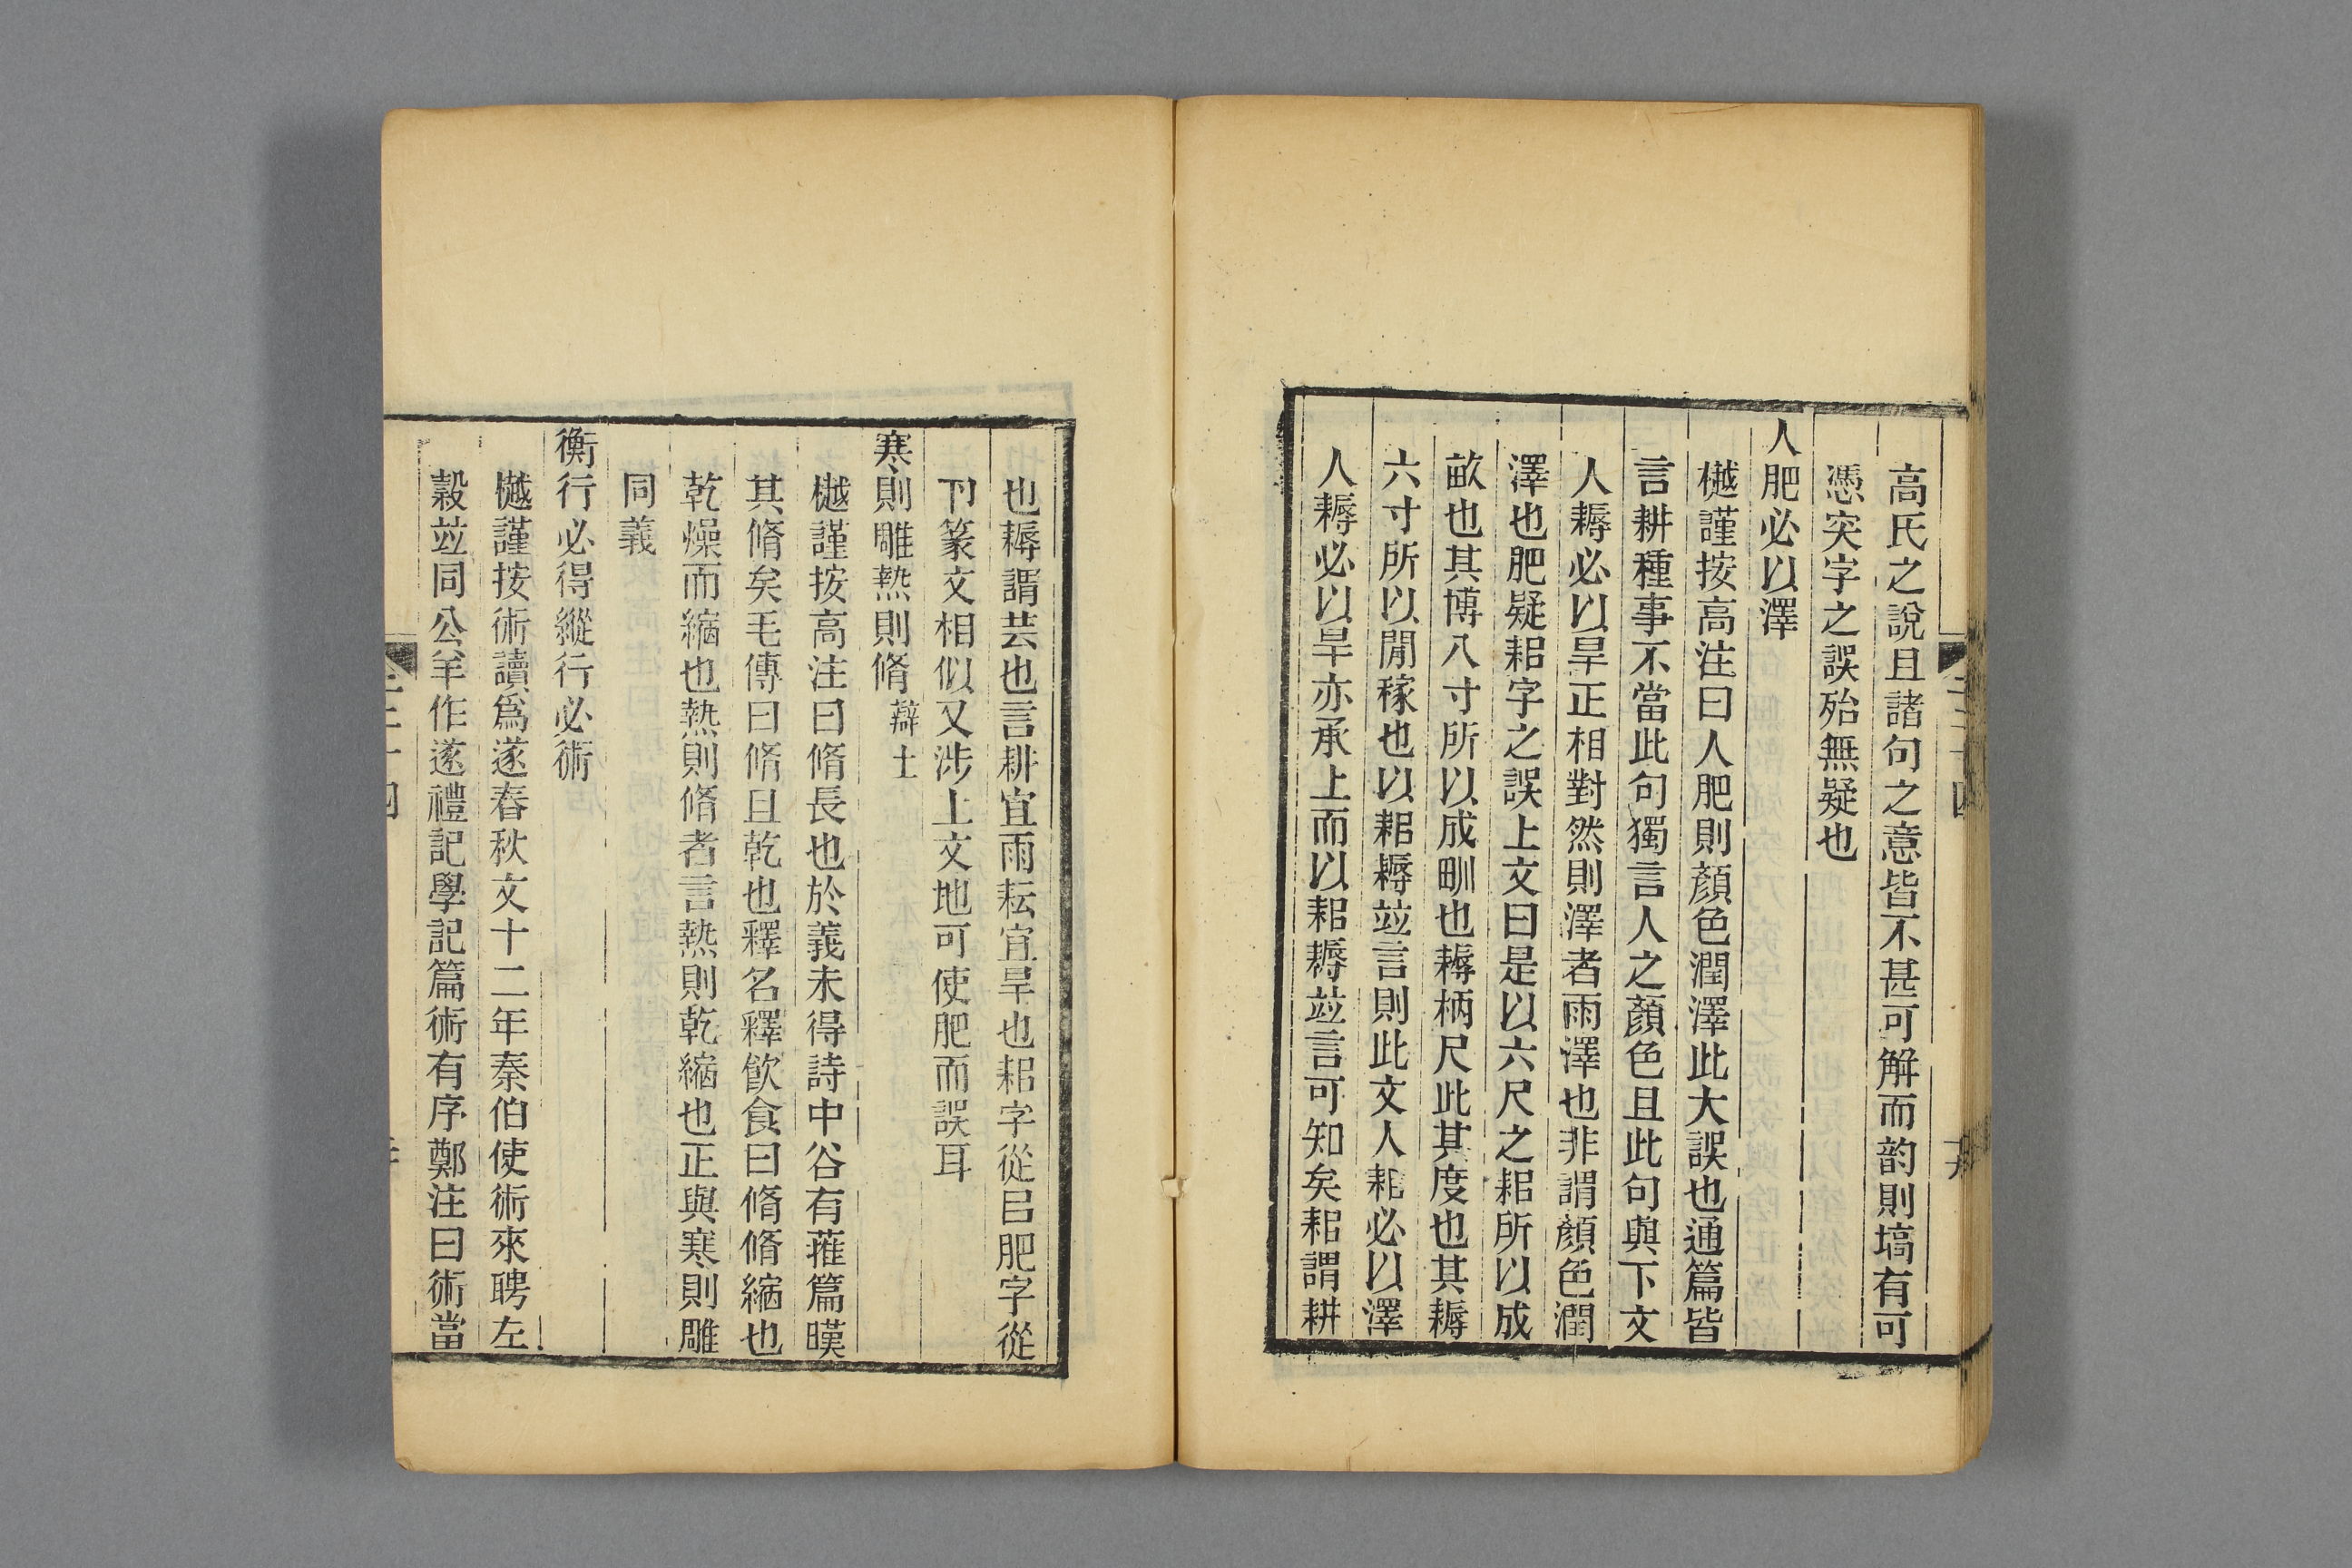 高氏之說且諸句之意皆不甚可解而韵則塙有可
憑突字之誤殆無疑也
人肥必以澤
樾謹按高注曰人肥則顏色潤澤此大誤也通篇皆
言耕種事不當此句獨言人之顏色且此句與下文
人耨必以旱正相對然則澤者雨澤也非謂顏色潤
澤也肥疑耜字之誤上文曰是以六尺之耜所以成
畝也其博八寸所以成甽也耨柄尺此其度也其耨
六寸所以閒稼也以耜耨竝言則此文人耜必以澤
人耨必以旱亦承上而以耜耨竝言可知矣耜謂耕
也耨謂芸也言耕宜雨耘宜旱也耜字從㠯肥字從
卪篆文相似又涉上文地可使肥而誤耳
寒則雕熱則脩 辯土
樾謹按高注曰脩長也於義未得詩中谷有蓷篇暵
其脩矣毛傳曰脩且乾也釋名釋飮食曰脩脩縮也
乾燥而縮也熱則脩者言熱則乾縮也正與寒則雕
同義
衡行必得縱行必術
樾謹按術讀爲遂春秋文十二年秦伯使術來聘左
穀竝同公羊作遂禮記學記篇術有序鄭注曰術當